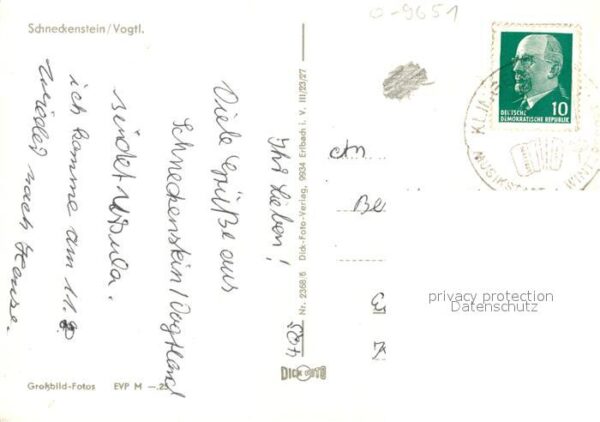 Schneckenstein/Vogtl.
0-9651
Ihr Lieben!
Viele Grüße aus
Schneckenstein/Vogtland
sendet Ursula.
ich komme am 11.
wieder nach Hause.
Großbild-Fotos EVP M -.25
Nr. 2368/5 Dick-Foto-Verlag, 9934 Erlbach i. V. III/23/27
DICK FOTO
An
10
DEUTSCHE
DEMOKRATISCHE REPUBLIK
privacy protection
Datenschutz